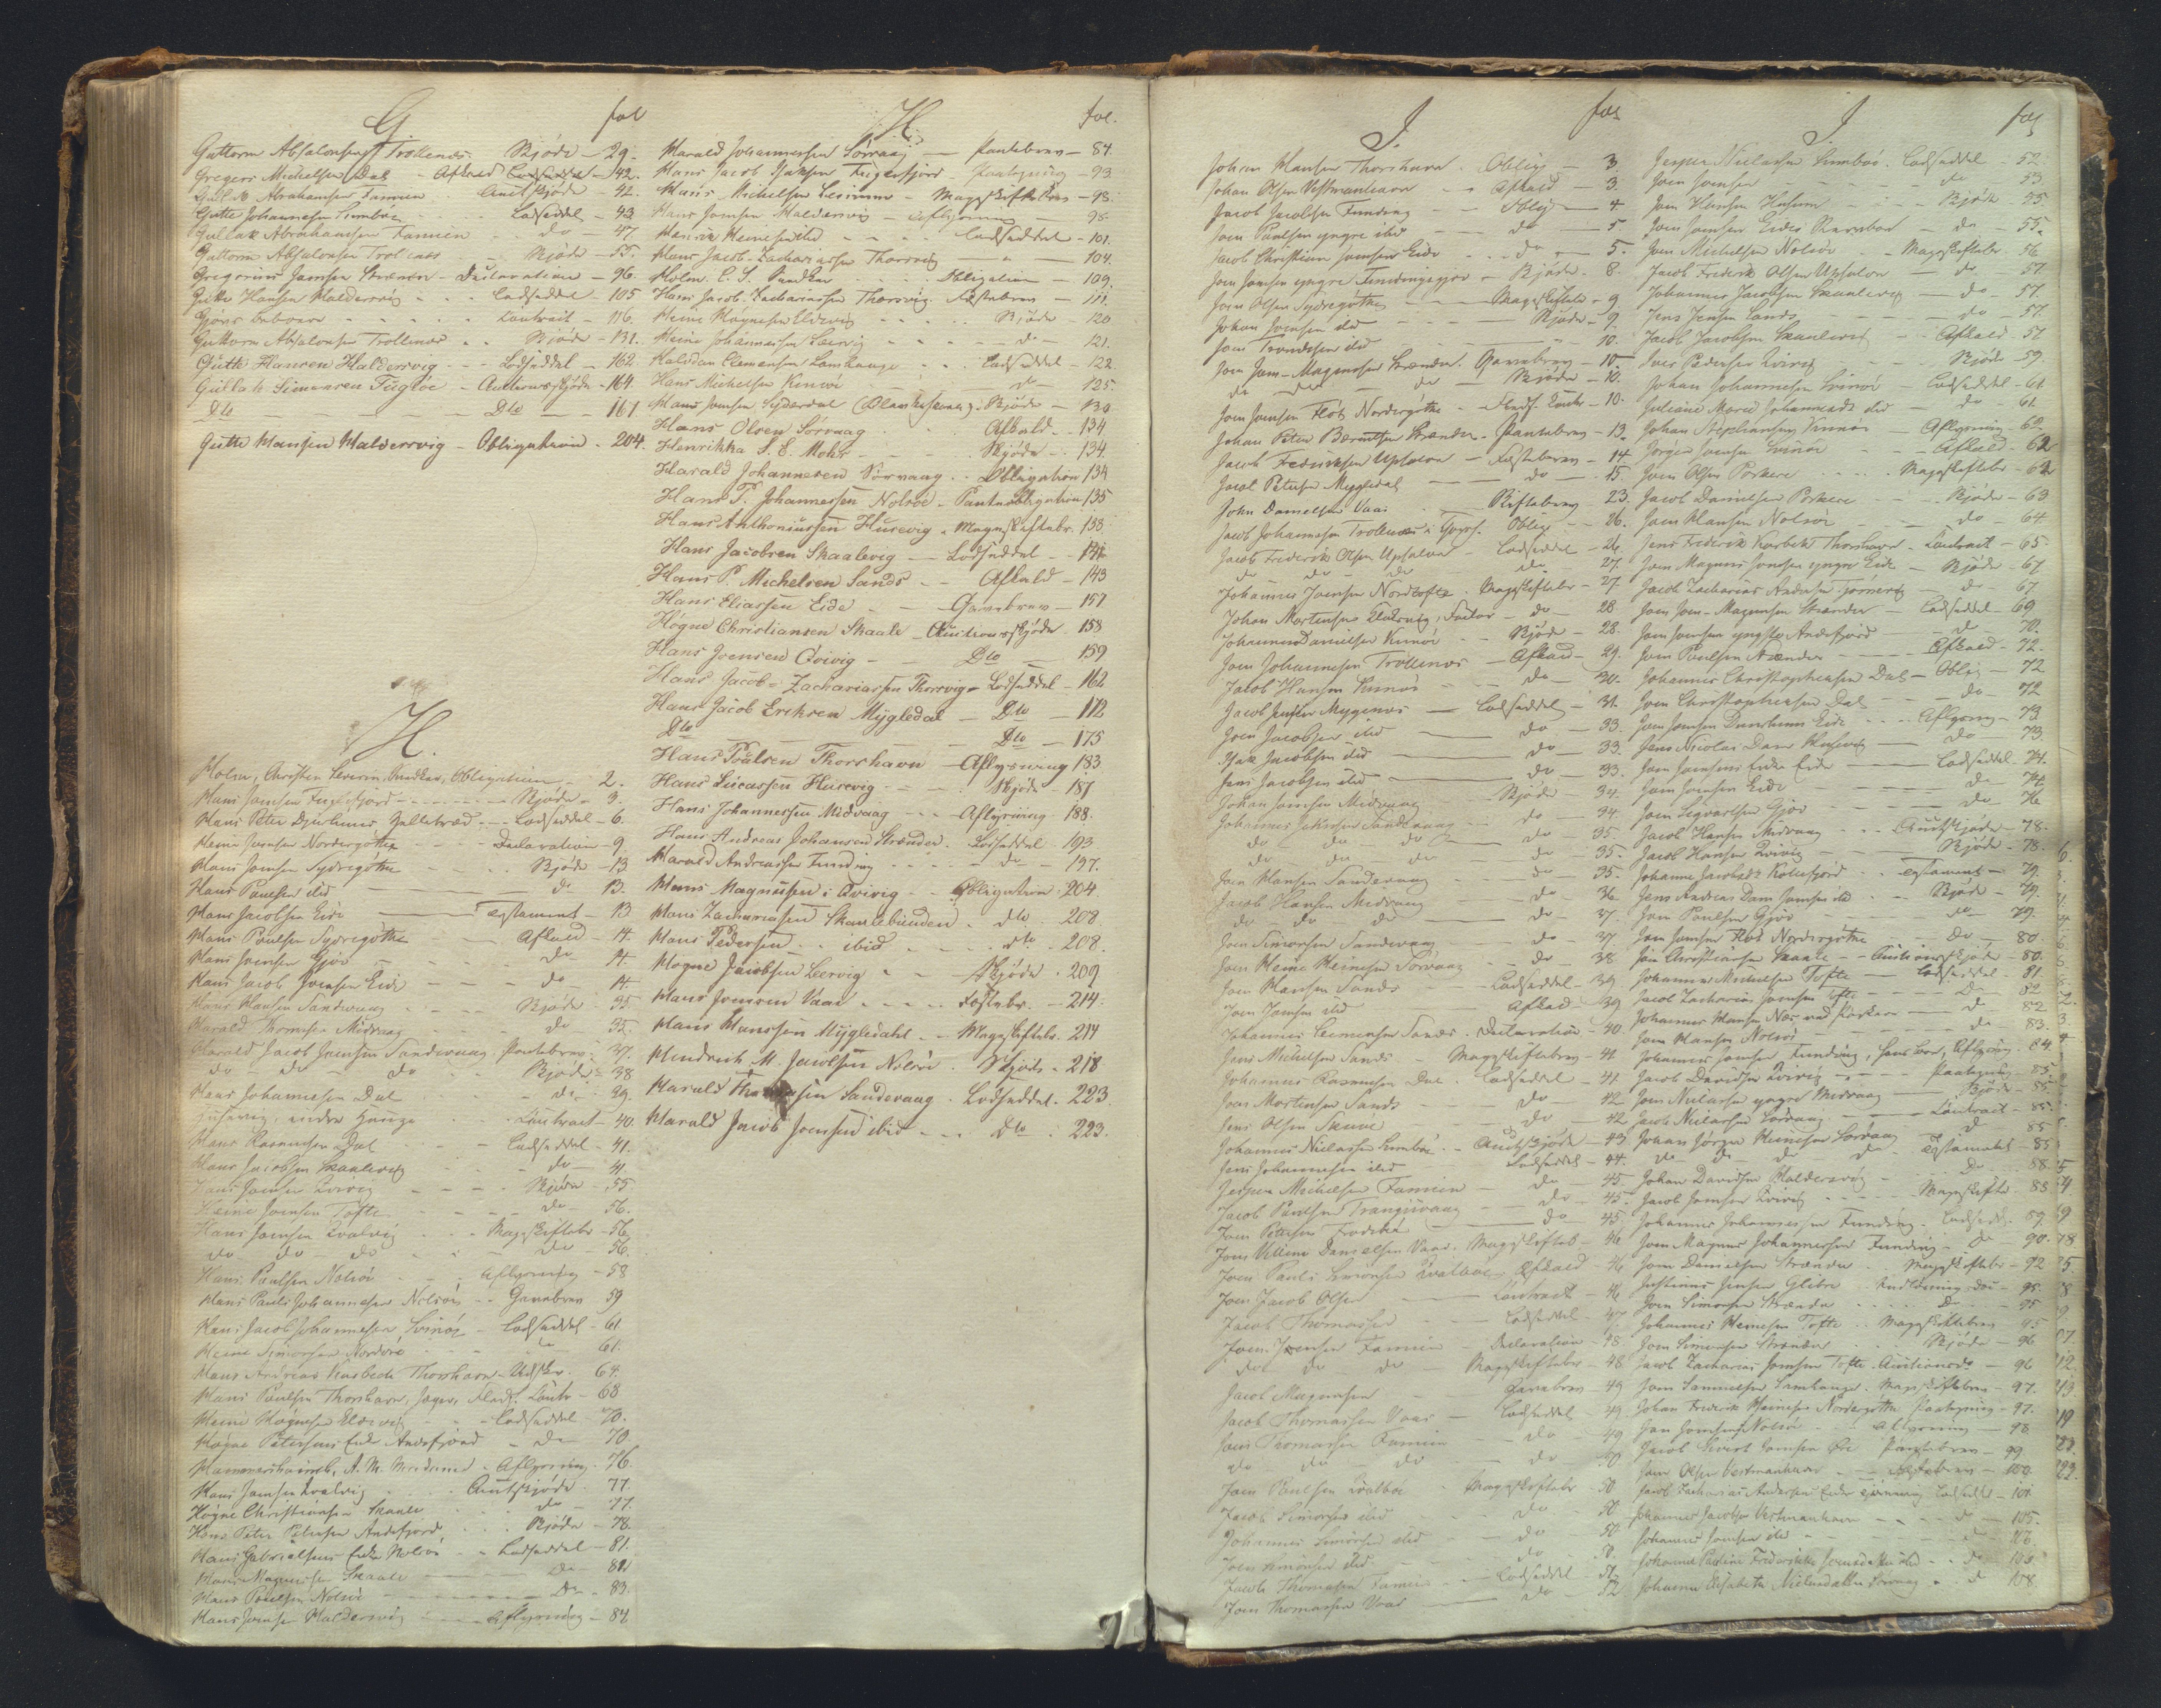 G fol
Guttorm Absalonsen Trøllenæs. Skjøde - 29.
Gregers Michelsen Dal - Afkald - 42.
Gullak Abrahamsen Famien Auct Skjøde - 42.
Gutte Johannesen Sumböe Ladseddel - 43
Gullak Abrahamsen Famien - do - 47
Guttorm Absalonsen Trøllenæs - Skjøde - 55.
Gregorius Joensen Strænder - Declaration - 96.
Gutte Hansen Haldersvig - - - Ladseddel - 105
Gjøve beboere - - - - Contract - 116.
Guttorm Absalonsen Trøllenæs - - Skjøde - 131.
Gutte Hansen Haldersvig - - - Lodseddel - 162
Gullak Simonsen Fugløe - Auctionsskjøde - 164.
Dto - - - - Dto - - 167
Gutte Hansen Haldersvig - Obligation - 204.
H.
Holm, Christen Severin, Sandkær, Obligation - 2.
Hans Joensen Fuglefjord - - - - Skjøde - 3.
Hans Peter Djurhuus Gallebræd - - Ladseddel - 6.
Heine Joensen Nordregøthe - - - Declaration - 9.
Hans Joensen Sydregøthe - - - Skjøde - 13
Hans Poulsen ibid - do 13.
Hans Jacobsen Eide - Testament - 13
Hans Poulsen Sydregøthe - Afkald - 14.
Hans Joensen Gjöv - do - 14.
Hans Jacob Joensen Eide - - - do - 14.
Hans Hansen Sandevaag - - Skjøde - 35
Harald Thomsen Midvaag - do - 35.
Harald Jacob Joensen Sandevaag Pantebrev - 37.
do - do - do - Skjøde - 38
Hans Johannesen Dal - do - 39.
Husevig, - Contract - 40.
Hans Rasmussen Dal - Ladseddel - 41.
Hans Jacobsen Skaalevig - do - 41.
Hans Joensen Qvivig - - - Skjøde - 55.
Heine Joensen Tofte - - - do - 56.
Hans Joensen Qvalvig - - Mageskiftebr - 56.
do do - do - do - 56.
Hans Poulsen Nolsöe - - - Aflysning - 58
Hans Pauli Johannesen Nolsöe - - Gavebrev 59
Hans Jacob Johannesen Svinöe - Ladseddel - 61
Heine Simonsen Nordöre - 61.
Hans Andreas Kaarbech Thorshavn - 64.
Hans Poulsen Thorshavn, Jæger, 68
Heine Høgnesen Eldevig - - Ladseddel - 70.
Høgne Petersens Enke Andefjord - do - 70.
Hammershaimb, - Aflysning - 76.
Hans Joensen Qvalvig - Auctskjøde - 77.
Høgne Christiansen Skaale - do - 77.
Hans Peter Petersen Andefjord - - Skjøde - 78.
Hans Gabrielsens Enke Nolsöe - - Ladseddel - 81.
Hans Magnussen Skaale - do - 82
Hans Poulsen Nolsöe - do - 83.
Hans Joensen Haldersvig - Aflysning - 84
H. fol.
Harald Johannessen Sörvaag - Pantebrev - 84.
Hans Jacob Isaksen Fuglefjord - Paategning - 93
Hans Michelsen Lervig - Mageskiftebrev - 98.
Hans Joensen Haldersvig - Aflysning - 98
Henrik Heinesen ibid - - - Ladseddel - 101.
Hans Jacob Zachariasen Thorsvig - - 104.
Holm C. S. Sandkær - Obligation - 109
Hans Jacob Zachariasen Thorsvig - Fæstebrev - 111.
Heine Høgnesen Eldevig - - - Skjøde - 120
Heine Johannessen Lervig - - - do - 121.
Halvdan Clemensen Lamhauge - - Ladseddel - 122
Hans Michelsen Kunöe - do - 125.
Hans Joensen Syderdal - Skjøde - 130
Hans Olsen Sorvaag - Afkald - 134
Henrikka S. E. Mohr - - - Skjøde - 134.
Harald Johannesen Sörvaag - - Obligation 134
Hans P. Johannesen Nolsöe - Panteobligation 135
Hans Anthoniussen Husevig - Mageskiftebr. 138.
Hans Jacobsen Skaalevig - Lodseddel - 141
Hans P. Michelsen Sands - - Afkald - 143
Hans Eliassen Eide - - Gavebrev - 157
Høgne Christiansen Skaale - Auctionsskjøde - 158
Hans Joensen Qvivig - - Dto - 159
Hans Jacob Zachariassen Thorsvig - Lodseddel - 162
Hans Jacob Eriksen Mygledal - Dto - 172
Dto - - - Dto - 175
Hans Poulsen Thorshavn - Aflysning 183
Hans Lucassen Husevig - - - Skjøde - 187
Hans Johannessen Midvaag - - - Aflysning 188.
Hans Andreas Johansen Strænder. Lodseddel 193
Harald Andreassen Funding - - - do - 197.
Hans Magnussen i Qvivig - - Obligation - 204.
Hans Zachariasen Skaalebunden - dto - 208
Hans Pedersen - - ibid - - - dto - 208.
Høgne Jacobsen Leervig - - Skjøde - 209
Hans Joensen Vaai - - - Festebr. - 214.
Hans Hanssen Mygledahl - - Mageskiftebr. 214
Hendrik M. Jacobsen Nolsöe - Skjöde - 218
Harald Thomasen Sandevaag - Lodseddel. 223.
Harald Jacob Joensen ibid - - Dto - 223.
J. fol
Johan Hansen Thorshavn - Oblig - 3
Johan Olsen Vestmanhavn - - Afkald - 3.
Jacob Jacobsen Funding - - Oblig - 4
Joen Poulsen yngre ibid - do - 5
Jacob Christian Joensen Eide - - do - 5.
Joen Joensen yngre - Skjøde - 8.
Joen Olsen Sydregøthe - Mageskiftebr - 9
Johan Joensen ibid - - Skjøde - 9.
Joen Trondesen ibid - - 10.
Joen Joen-Magnussen Strænder. Gavebrev - 10
do do - do - Skjøde - 10.
Joen Joensen Flöt Nordregøthe - 10.
Johan Peter Berntsen Strænder - Pantebrev - 13.
Jacob Frederiksen Upsalen - Fæstebrev - 14
Jacob Petersen Mygledal - do - 15.
John Danielsen Vaai - Skiftebrev 23.
Jacob Johannesen Trøllenæs - Oblig - 26.
Jacob Frederik Olsen Upsalen - Ladseddel - 26
do - do - do - do - 27.
Johannes Joensen Nordtofte - Mageskiftebr - 27.
Johan Mortensen - do - 28
Johannes Danielsen Kunöe - - Skjøde - 28.
Joen Johannesen Trøllenæs - Afkald - 29.
Jacob Hansen Kunöe - do - 30.
Jacob Jensen Mygenæs - Ladseddel - 31.
Joen Jacobsen ibid - do - 33.
Isak Jacobsen ibid - do - 33.
Jens Jacobsen ibid - do - 33.
Johan Joensen Midvaag - Skjøde - 34.
Johannes Sandevaag - do - 34.
do do do - do - 35.
do do do - do - 35.
Joen Hansen Sandevaag - do - 35.
Jacob Hansen Midvaag - do - 36
do do do - do - 37.
Joen Simonsen Sandevaag - do 37
Joen Heine Heinesen Sörvaag - do - 38.
Joen Hansen Sands - Ladseddel - 39
Joen Joensen ibid - Afkald 39
Johannes Clemensen Sands - Declaration - 40.
Jens Michelsen Sands - Mageskiftebrev - 41.
Johannes Rasmussen Dal - Ladseddel - 41.
Joen Mortensen Sands - do - 42
Jens Olsen Skuöe - do - 42
Johannes Nielsen Sumböe - Auctskjøde - 43
Jens Johannesen ibid - Ladseddel - 44.
Jesper Michelsen Famien - do - 45
Jacob Poulsen Trangisvaag - do - 45
Joen Petersen Frodebö - do - 45
Jens Willum Danielsen Vaai - Mageskiftebr - 46
Joen Pauli Simonsen Qvalböe - Afkald - 46
Joen Jacob Olsen - Contract - 46
Jacob Thomassen - Ladseddel - 47
Joen Joensen Famien - Declaration - 48
do do do - Mageskiftebr - 48
Jacob Magnussen - Gavebrev - 49
Jacob Thomassen Vaai - Ladseddel - 49
Joen Thomassen Famien - do - 49
do do - do - do 50
Joen Poulsen Qvalböe - Mageskiftebr - 50
Jacob Simonsen ibid - do - 50
Johannes Simonsen ibid - do - 50
Joen Simonsen ibid - do
Jacob Thomassen Famien - Ladseddel - 51.
Joen Thomassen Vaai - do - 52
J fol
Jesper Nielsen Sumböe. Ladseddel - 52.
Joen Joensen - do - 53
Joen Hansen Husum - - Skjøde 55
Joen Joensen Eides - do - 55.
Joen Michelsen Nolsöe - - Mageskiftebr 56
Jacob Frederik Olsen Upsalen - do - 57.
Johannes Jacobsen Skaalevig - do - 57.
Jens Jensen Sands - - - do - 57.
Jacob Jacobsen Skaalevig - Afkald - 57
Iver Pedersen Qvivig - Skjøde - 59.
Johan Johannesen Svinöe - Ladseddel - 61
Juliane Marie Johannesdt ibid - do 61.
Johan Stephansen Svinöe - Aflysning - 62
Jörgen Joensen Svinöe - - Afkald - 62
Joen Olsen Porkere - - Mageskiftebr - 62
Jacob Danielsen Porkere - - Skjøde - 63
Joen Hansen Nolsöe - do - 64
Jens Frederik Kaarbek Thorshavn - Contract - 65.
Joen Magnus Joensen yngre Eide - Skjøde - 67
Jacob Zacharias Andersen Tjörnevig - do 67
Joen Joen-Magnussen Strænder - Ladseddel - 69
Joen Joensen yngste Andefjord - do 70.
Joen Poulsen Strænder - Afkald - 72.
Johannes Christophersen Dal - Oblig - 72
Joen Christophersen Dal - do - 72
Joen Joensen Eide - - - Aflysning - 73
Jens Nicolai Dam Husevig - do 73.
Joen Joensens Enke Eide - Ladseddel 74.
Joen Joensen Eide - do 74
Joen Sigvartsen Gjöv - do 76
Jacob Hansen Midvaag - - - Auctskjøde - 78.
Jacob Hansen Qvivig - Skjøde - 78.
Johanne Jacobsdt Kollefjord - - Testament - 79.
Jens Andreas Dam Joensen ibid - Skjøde - 79.
Joen Poulsen Gjöv - do - 79.
Joen Joensen Flöt Nordregøthe - do - 80.
Joen Christiansen Skaale - - Auctionsskjøde - 80.
Johannes Michelsen Tofte - Ladseddel - 81.
Jacob Zacharias Joensen Tofte - do 82
Johannes Hansen Næs ved Porkere - do 82
Joen Hansen Nolsöe - do 83.
Johannes Joensen Funding, Aflysning - 84.
Jacob Davidsen Qvivig - Paategning - 85.
Joen Nielsen yngre Midvaag - Skjøde - 85
Jacob Nielsen Sörvaag - Contract - 85.
Johan Jörgen Heinesen Sörvaag - do 85
do do do do - Testament - 85
Johan Davidsen Haldersvig - do 88
Jacob Joensen Qvivig - Mageskiftebr 88
Johannes Johannesen Funding - Ladseddel 89
Joen Magnus Johannesen Funding - do - 90.
Joen Danielsen Strænder - Mageskiftebr - 92
Justinus Jensen Glibre - 95
Joen Simonsen Strænder - - do - 95
Johannes Heinesen Tofte - Mageskiftebrev 95
Joen Simonsen Strænder - Skjøde - 96
Jacob Zacharias Joensen Tofte - Auctionsskj - 96
Joen Samuelsen Lamhauge - Mageskiftebrev 97.
Johan Frederik Heinesen Nordregøthe Paategning - 97.
Jan Joensen Nolsöe - Aflysning - 98
Jacob Sivert Joensen Öre Pantebrev - 99.
Joen Olsen Vestmanhavn - - Fæstebrev - 100.
Jacob Zacharias Andersens Enke Tjörnevig Ladseddel - 101
Johannes Jacobsen Vestmanhavn - - - do - 105.
Johannes Joensen ibid - - do 106.
Johanne Pauline Frederikke Joensdatter ibid - - do 108
Johanne Elisabeth Nielsdatter Sörvaag - do 108